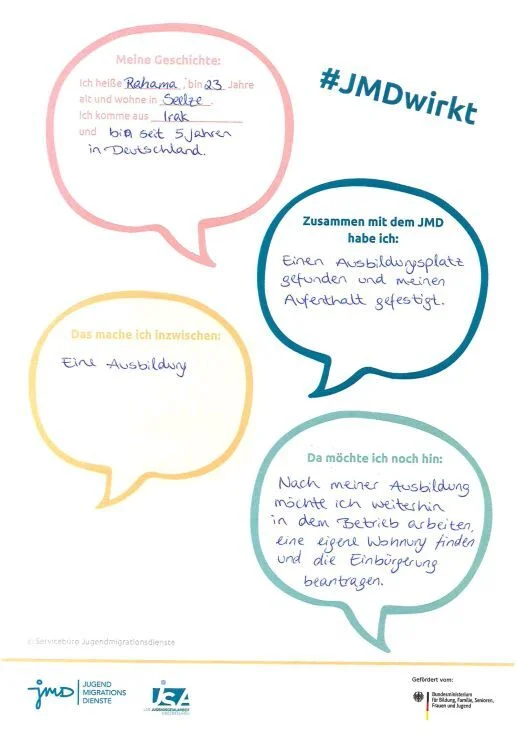 Meine Geschichte:
Ich heiße Rahama, bin 23 Jahre
alt und wohne in Seelze.
Ich komme aus Irak
und bin seit 5 Jahren
in Deutschland.
#JMDwirkt
Zusammen mit dem JMD
habe ich:
Einen Ausbildungsplatz
gefunden und meinen
Aufenthalt gefestigt.
Das mache ich inzwischen:
Eine Ausbildung
Da möchte ich noch hin:
Nach meiner Ausbildung
möchte ich weiterhin
in dem Betrieb arbeiten,
eine eigene Wohnung finden
und die Einbürgerung
beantragen.
© Servicebüro Jugendmigrationsdienste
jmD JUGEND
MIGRATIONS
DIENSTE
JSA
Gefördert vom:
Bundesministerium
für Bildung, Familie, Senioren,
Frauen und Jugend